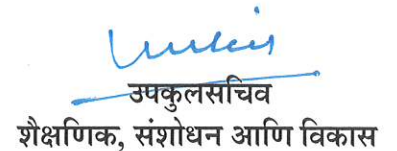 उपकुलसचिव
शैक्षणिक, संशोधन आणि विकास